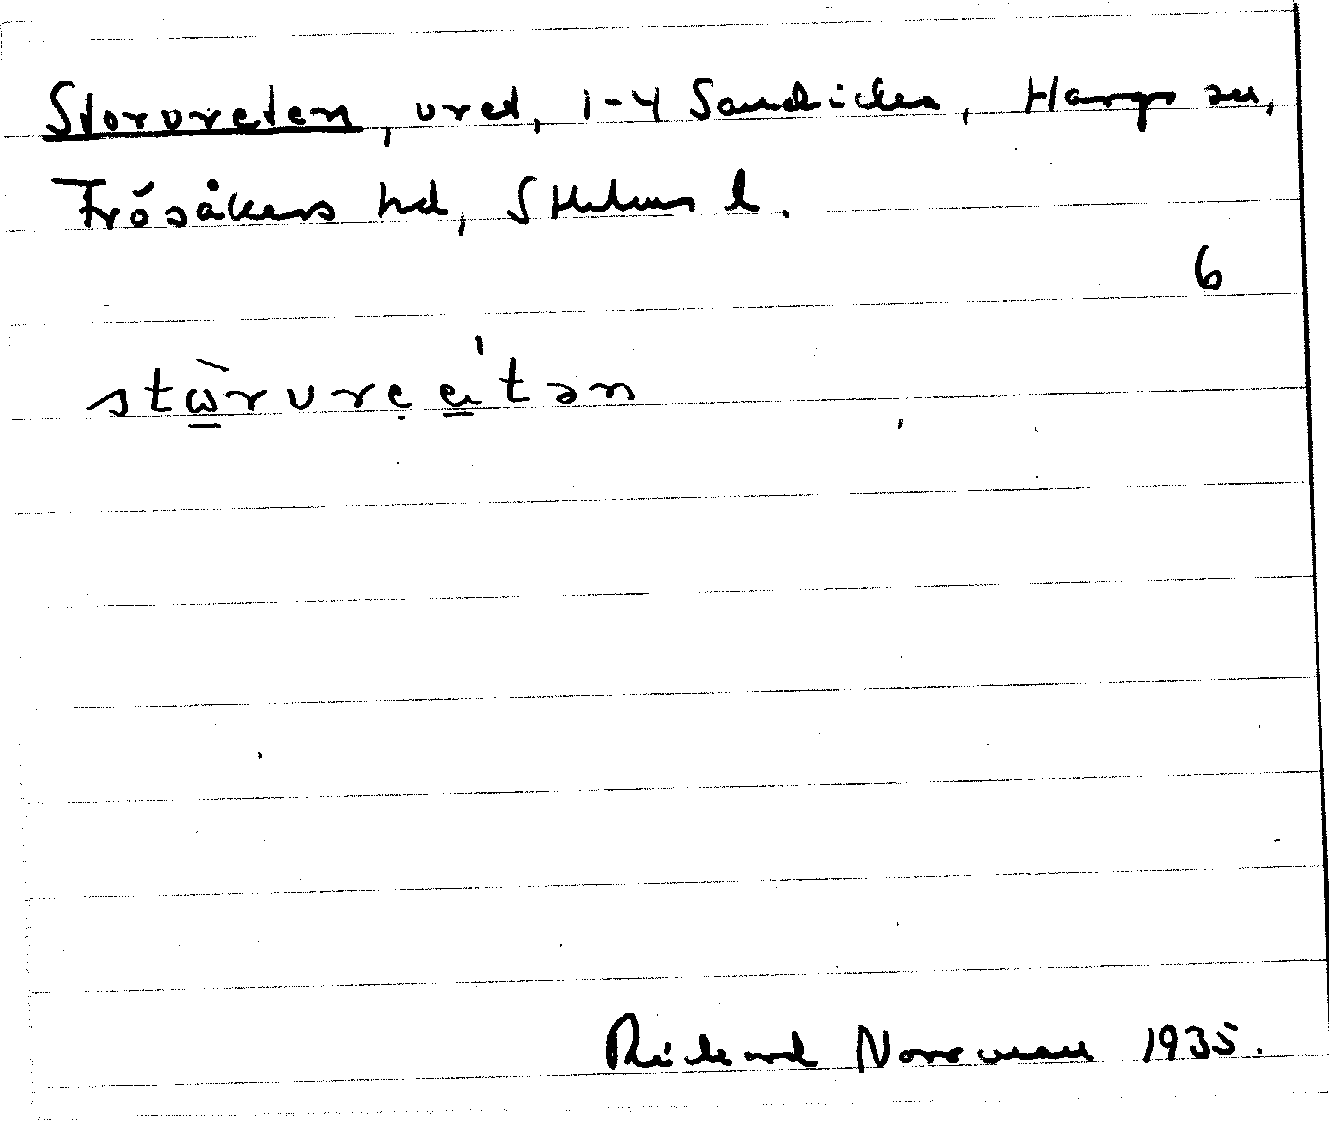 Storvreten, vret, 1-4 Sandviken, Hargs sn,
Frösåkers hd, Sthlms l.
6
stὼrvrẹe̱ˈtən
Rickard Norrman 1935.